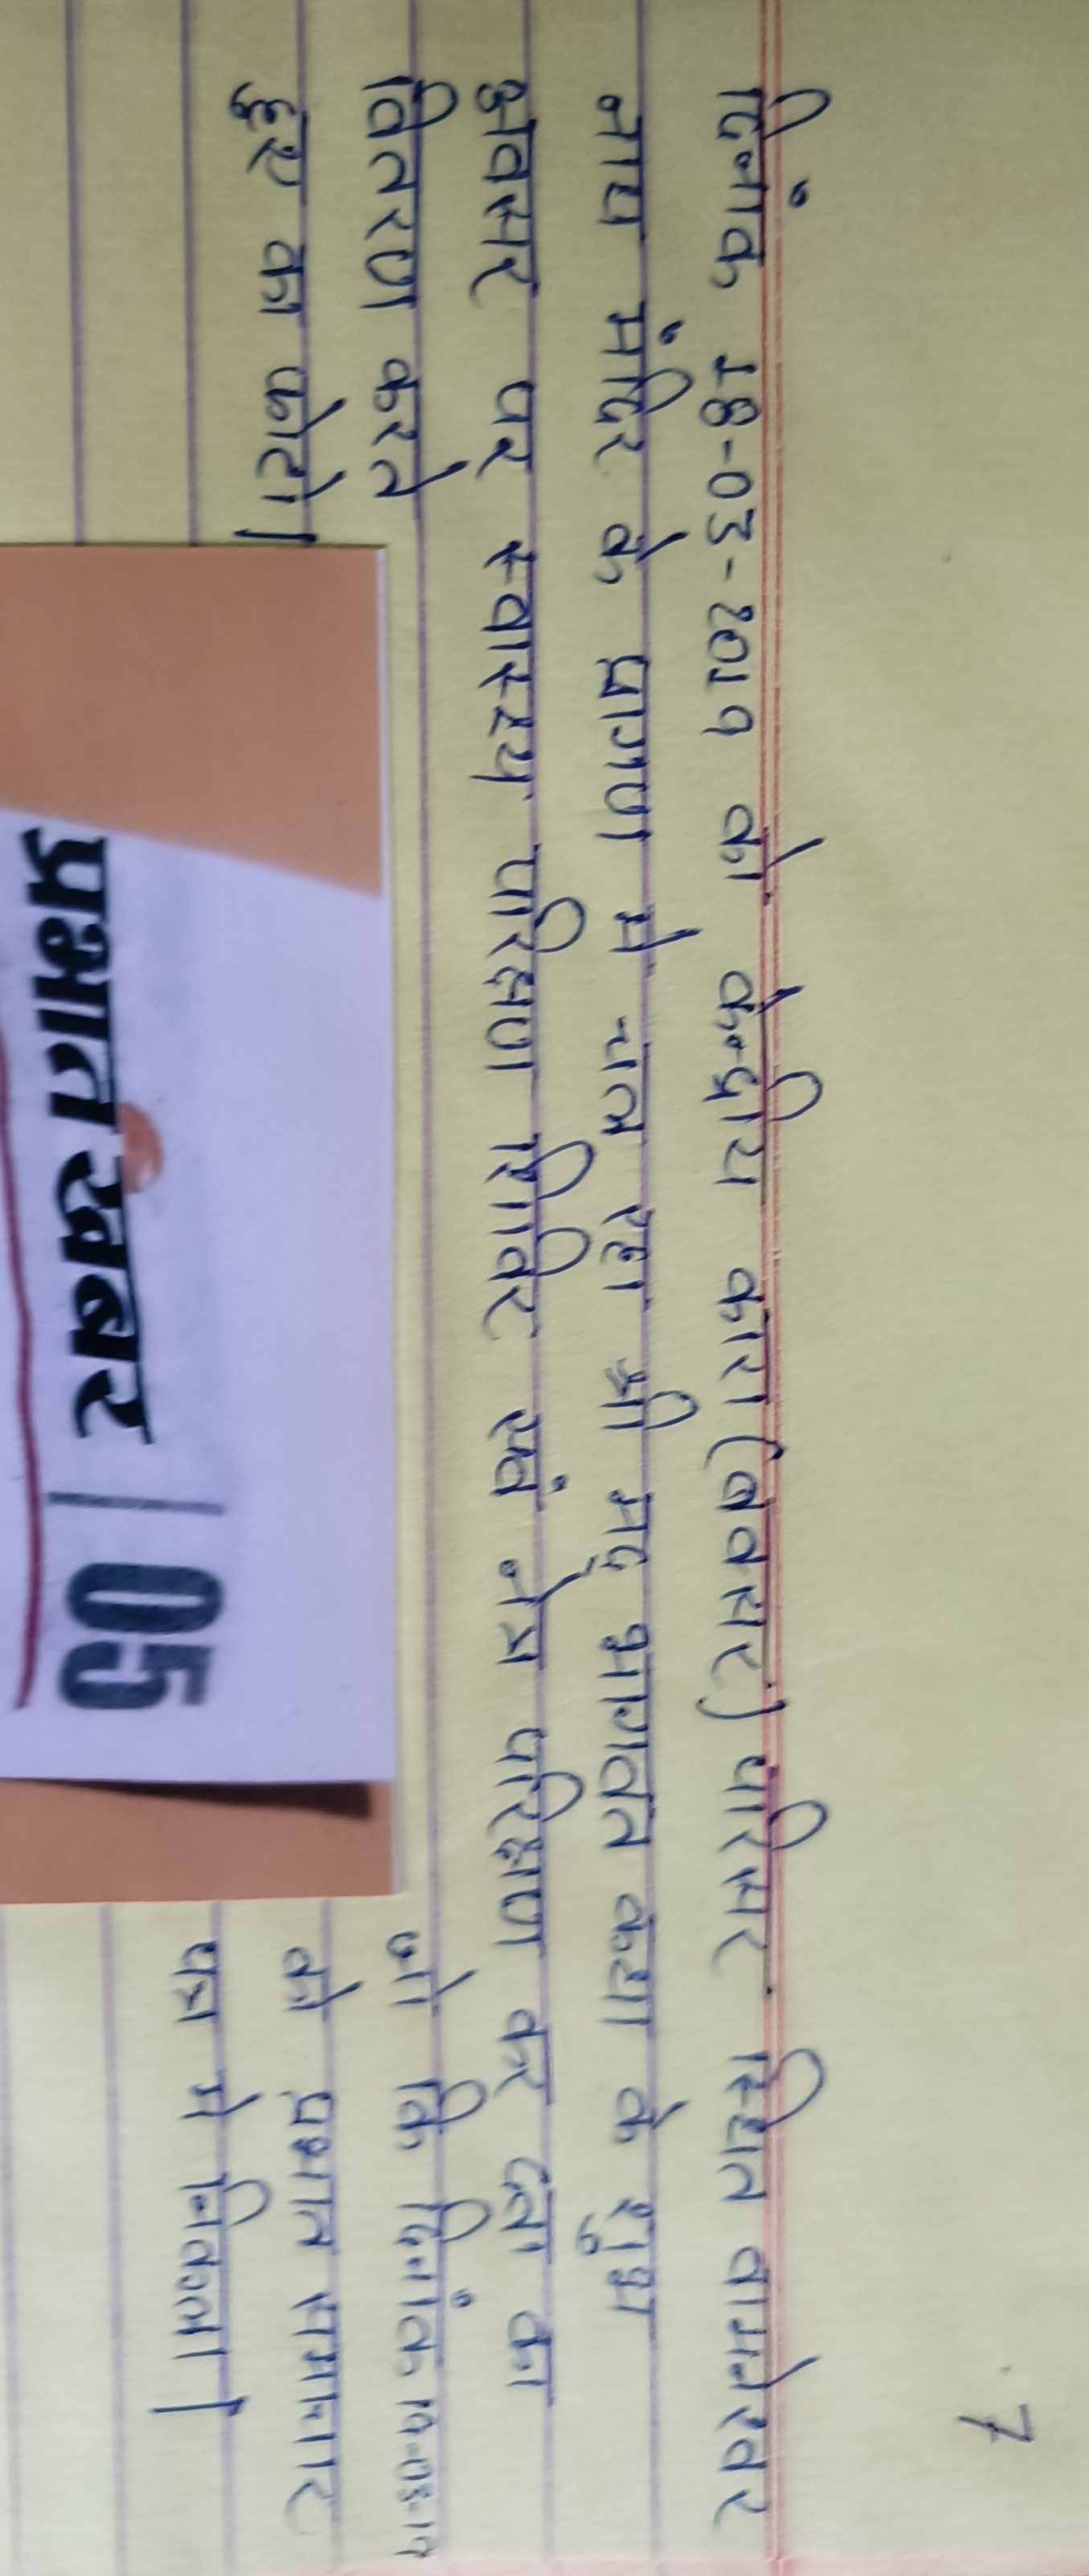 7
दिनांक 18-03-2019 को केन्द्रीय कारा (बक्सर) परिसर स्थित वामनेश्वर
नाथ मंदिर के प्रागण मे चल रहा श्री मद् भागवत कथा के शुभ
अवसर पर स्वास्थ्य परिक्षण शिविर एवं नेत्र परिक्षण कर दवा का
वितरण करते
हुए का फोटो।
जो कि दिनांक 19-03-19
को प्रभात समाचार
पत्र मे निकला।
प्रभात खबर | 05